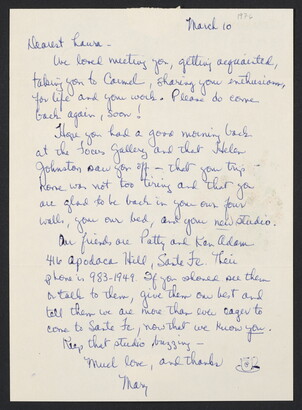 1976
March 10
Dearest Laura -
We loved meeting you, getting acquainted,
taking you to Carmel, sharing your enthusiasm,
for life and your work. Please do come
back again, soon!
Hope you had a good morning back
at the Focus Gallery and that Helen
Johnston saw you off - that your trip
home was not too tiring and that you
are glad to be back in your own four
walls, your own bed, and your new studio.
Our friends are Patty and Ken Adam
416 Apodaca Hill, Santa Fe. Their
phone is 983-1949. If you should see them
or talk to them, give them our best and
tell them we are more than ever eager to
come to Santa Fe, now that we know you.
Keep that studio buzzing -
Much love, and thanks
Mary